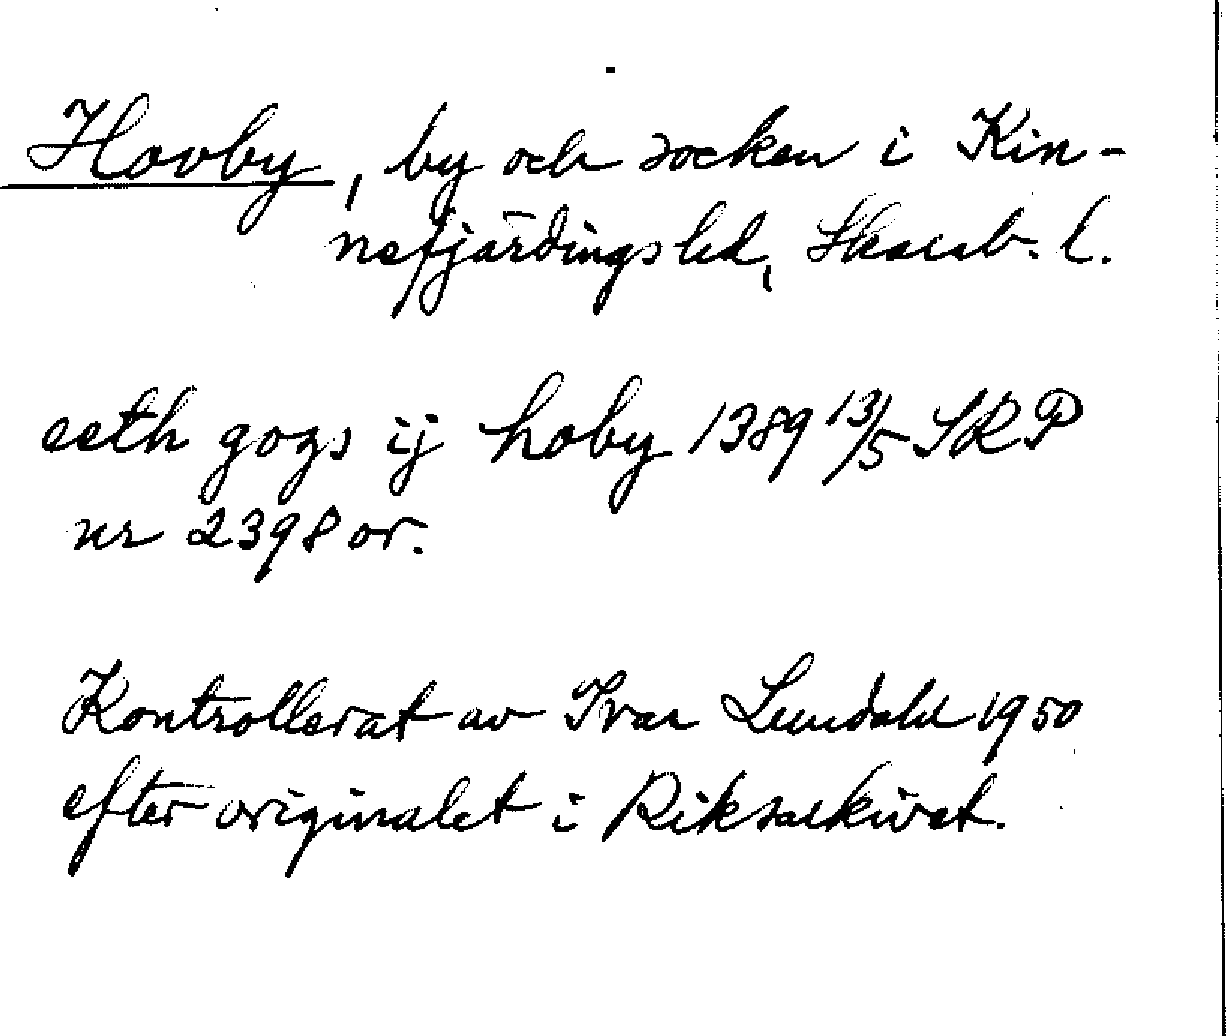 Hovby, by och socken i Kin-
nefjärdings hd, Skarab. l.
eeth gozs ij hoby 1389 13/5 SRP
nr 2398 or.
Kontrollerat av Ivar Lundahl 1950
efter originalet i Riksarkivet.